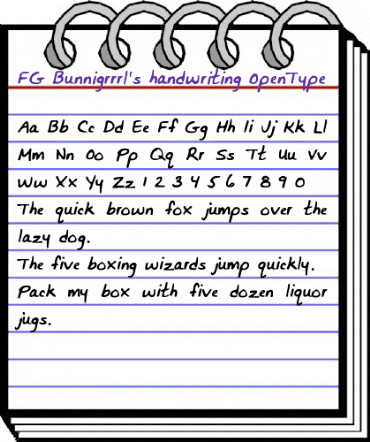 FG Bunnigrrrl's handwriting OpenType
Aa Bb Cc Dd Ee Ff Gg Hh Ii Jj Kk Ll
Mm Nn Oo Pp Qq Rr Ss Tt Uu Vv
Ww Xx Yy Zz 1 2 3 4 5 6 7 8 9 0
The quick brown fox jumps over the
lazy dog.
The five boxing wizards jump quickly.
Pack my box with five dozen liquor
jugs.